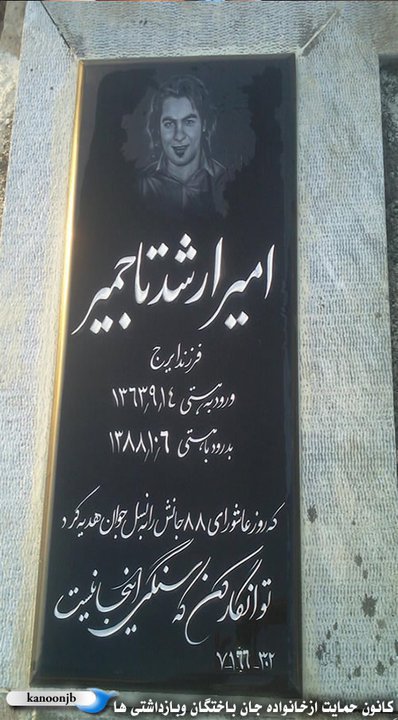 امیر ارشد تاجمیر
فرزند ایرج
ورود به هستی ۱۳۶۳٫۹٫۱٤
بدرود با هستی ۱۳۸۸٫۱۰٫۶
که روز عاشورای ۸۸ جانش را به نسل جوان هدیه کرد
تو انگار کن که سنگی اینجا نیست
۷_۱۹۶_۳۲
kanoonjb
کانون حمایت ازخانواده جان باختگان وبازداشتی ها